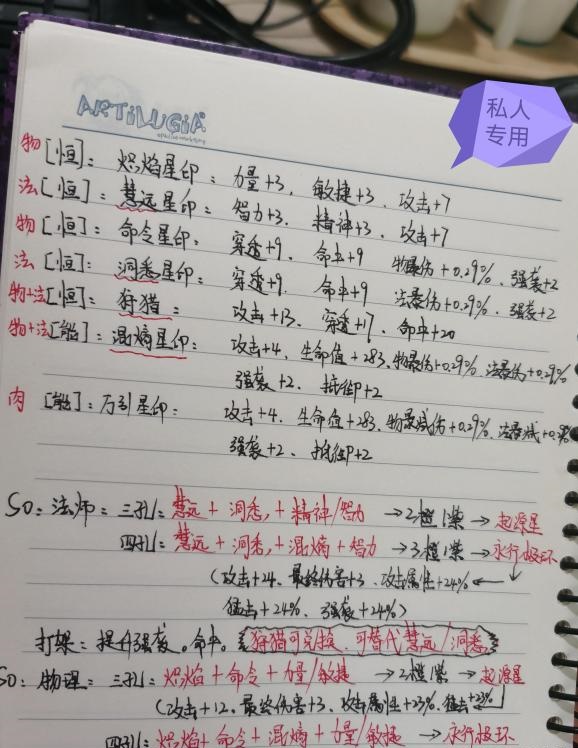 ARTiLUGiA
私人
专用
物[恒]：炽焰星印：力量+3，敏捷+3、攻击+7
法[恒]：慧远星印：智力+3、精神+3、攻击+7
物[恒]：命令星印：穿透+9、命中+9 物最伤+0.29%、强袭+2
法[恒]：洞悉星印：穿透+9、命中+9 法最伤+0.29%、强袭+2
物+法[恒]：狩猎：攻击+13、穿透+17、命中+20
物+法[能]：混熵星印：攻击+4、生命值+283、物最伤+0.29%、法最伤+0.29%
强袭+2、抵御+2
肉[能]：万引星印：攻击+4、生命值+283、物最减伤+0.29%、法最减+0.
强袭+2、抵御+2
So：法师：三孔：慧远+洞悉，+精神/智力→2橙1紫→起源星
四孔：慧远+洞悉，+混熵+智力→3橙1紫→永行极环
（攻击+24、最终伤害+3、攻击属性+24%←
猛击+24%、强袭+24%）
打架：提升强袭。命中。狩猎可兑换，可替代慧远/洞悉
So：物理：三孔：炽焰+命令+力量/敏捷→2橙1紫→起源星
（攻击+12、最终伤害+3、攻击属性+23%、猛击+23%）
四孔：炽焰+命令+混熵+力量/敏捷→永行极环